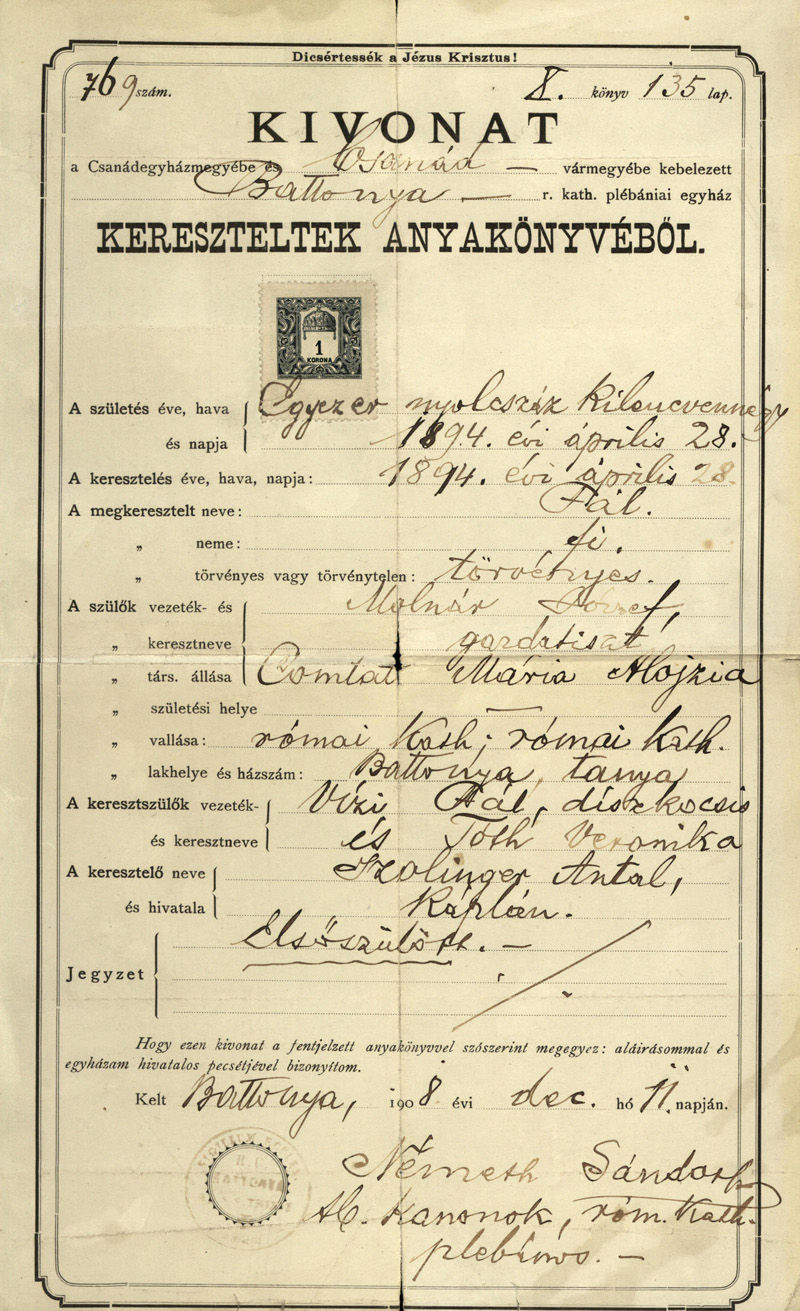 Dicsértessék a Jézus Krisztus!
769 szám. X. könyv 135 lap.
KIVONAT
a Csanádegyházmegyébe és Csanád — vármegyébe kebelezett
Battonya — r. kath. plébániai egyház
KERESZTELTEK ANYAKÖNYVÉBŐL.
1
KORONA
A születés éve, hava Egyezer nyolcszáz kilencvennégy
és napja 1894. évi április 28.
A keresztelés éve, hava, napja: 1894. évi április 28.
A megkeresztelt neve: Pál.
„ neme: fi.
„ törvényes vagy törvénytelen: törvényes.
A szülők vezeték- és Molnár József,
„ keresztneve gazdatiszt
„ társ. állása Comtat Mária Alojzia
„ születési helye —
„ vallása: római kath; római kath.
„ lakhelye és házszám: Battonya, tanya
A keresztszülők vezeték- Vízi Pál, díszkocsis
és keresztneve és Tóth Veronika
A keresztelő neve Szolinger Antal,
és hivatala káplán.
Jegyzet Elsőszülött. —
Hogy ezen kivonat a fentjelzett anyakönyvvel szószerint megegyez: aláirásommal és
egyházam hivatalos pecsétjével bizonyítom.
Kelt Battonya, 1908 évi dec. hó 11. napján.
Németh Sándor
kanonok, róm. kath.
plébános. —